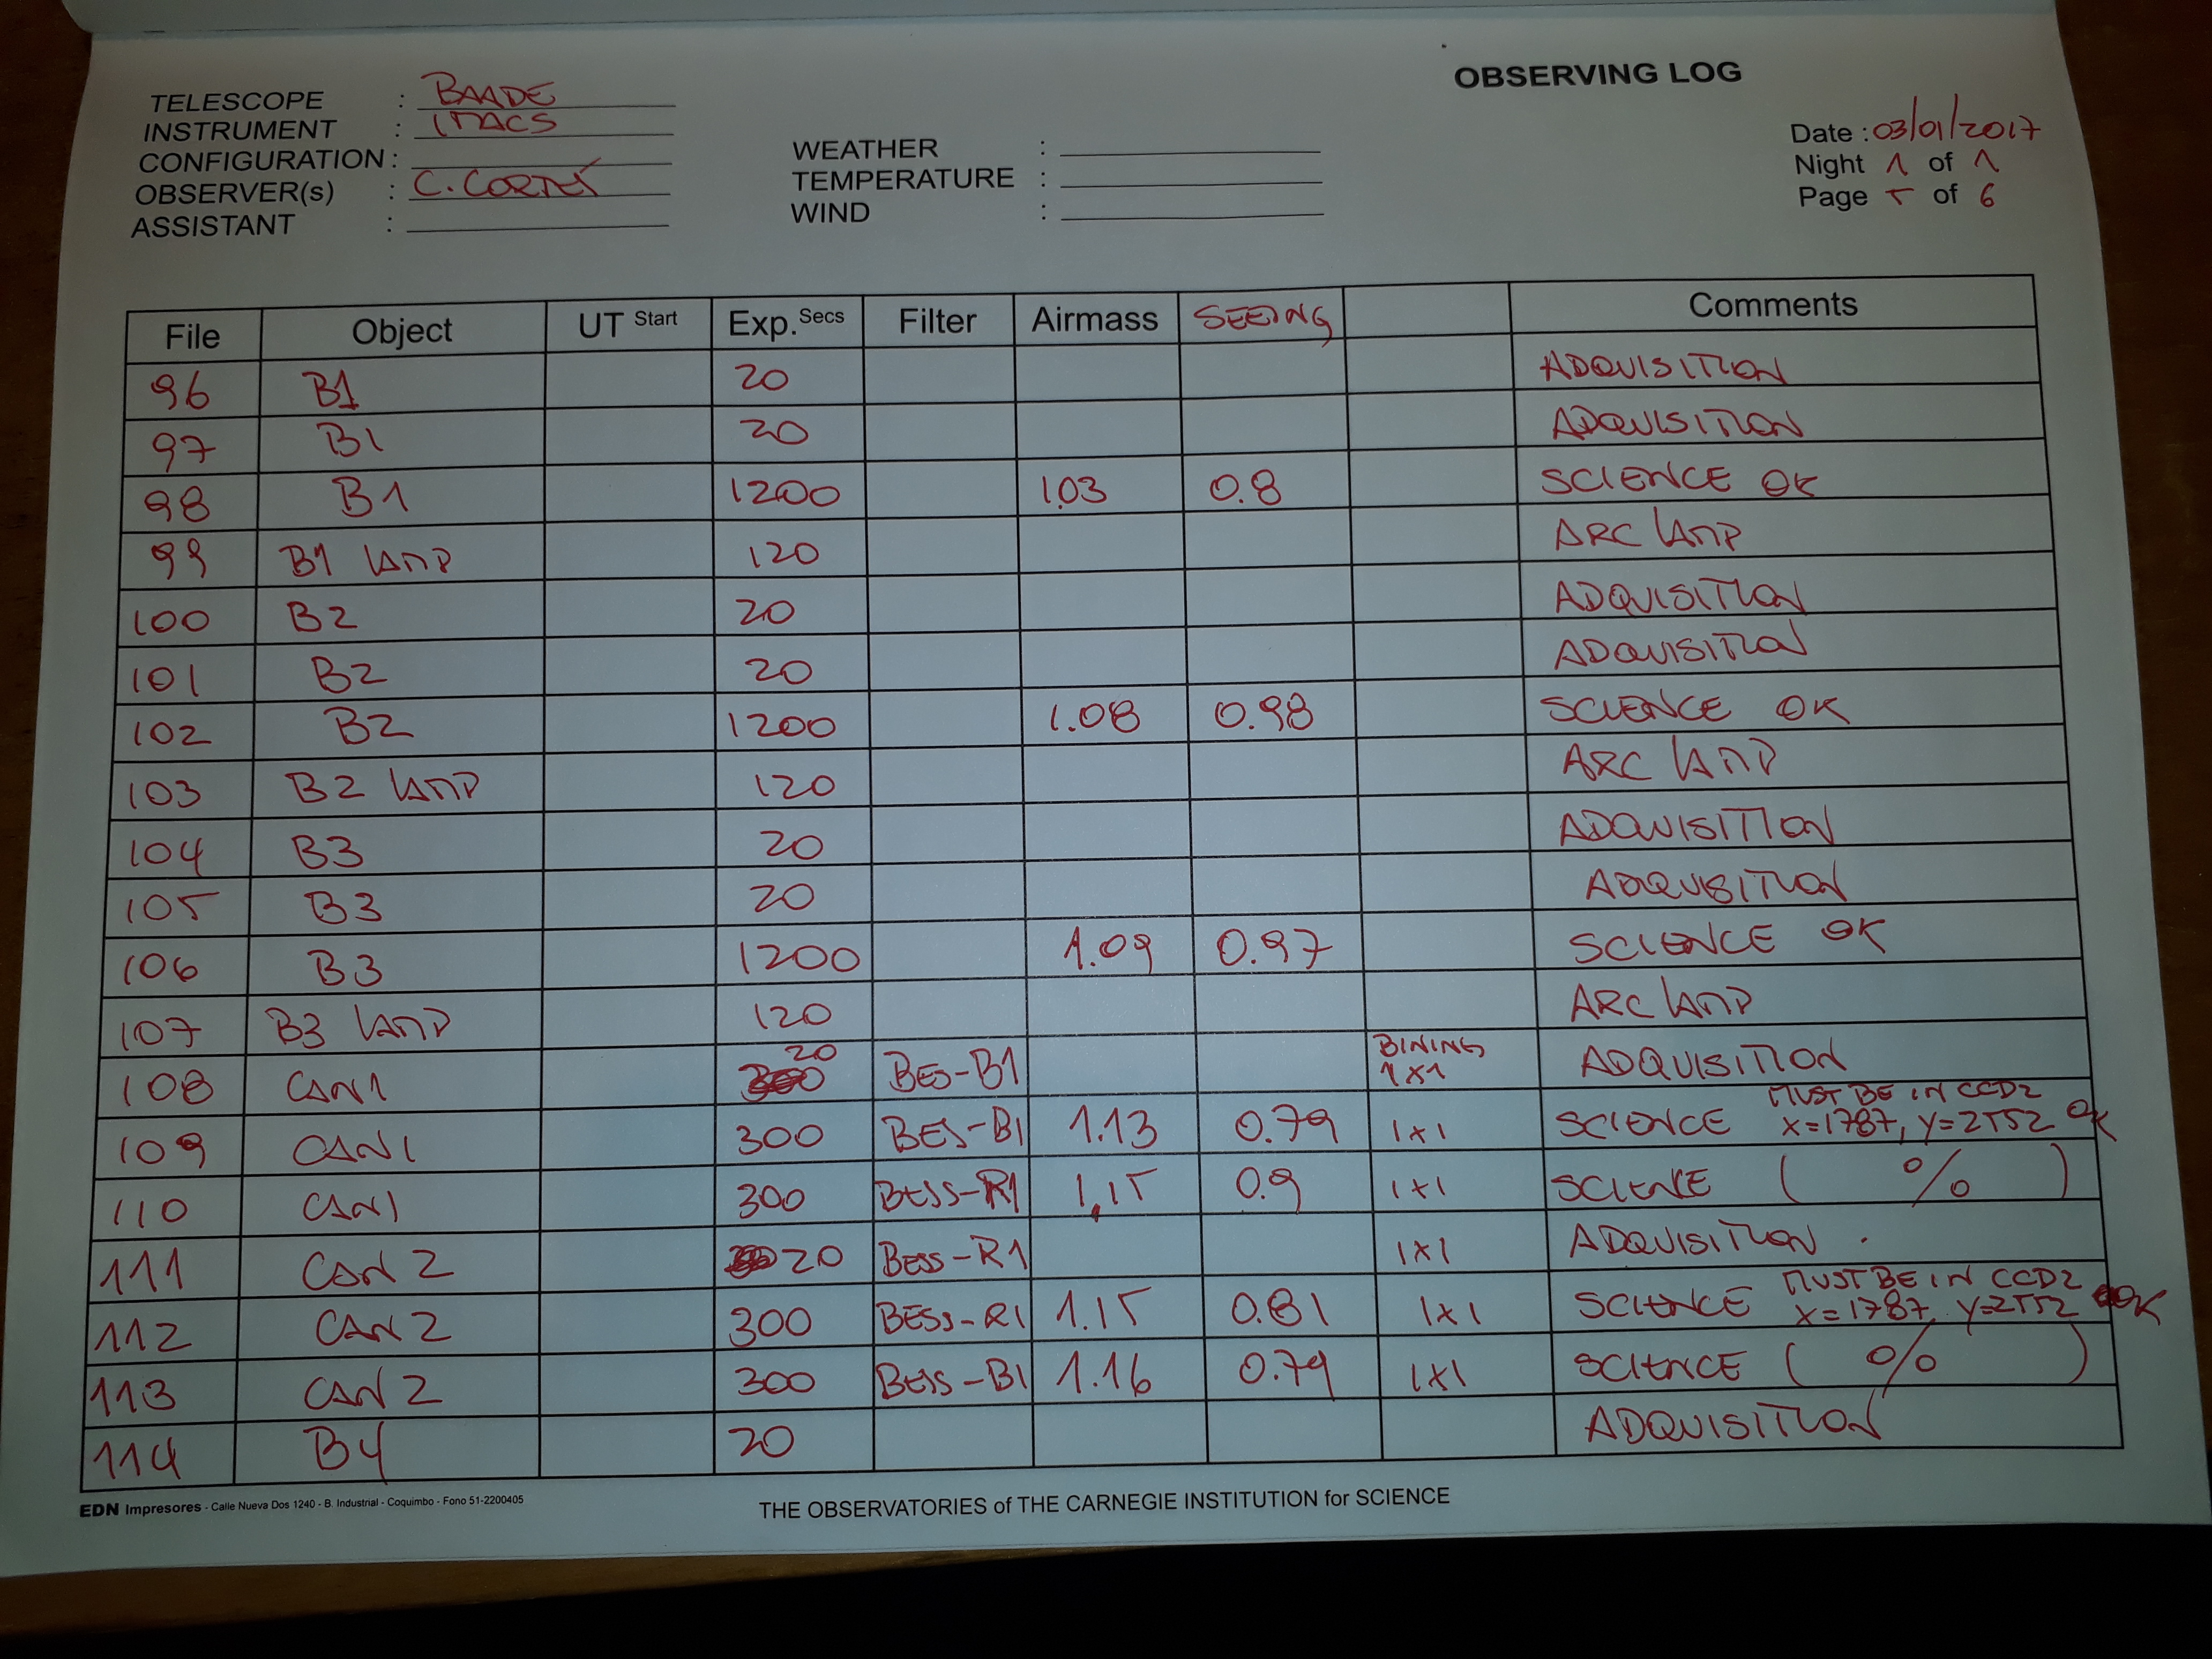 OBSERVING LOG
TELESCOPE : BAADE
INSTRUMENT : IMACS
CONFIGURATION :
OBSERVER(s) : C. CORTÉS
ASSISTANT :
WEATHER :
TEMPERATURE :
WIND :
Date : 03/01/2017
Night 1 of 1
Page 5 of 6
File Object UT Start Exp. Secs Filter Airmass SEEING Comments
96 B1 20 ADQUISITION
97 B1 20 ADQUISITION
98 B1 1200 1.03 0.8 SCIENCE OK
99 B1 LAMP 120 ARC LAMP
100 B2 20 ADQUISITION
101 B2 20 ADQUISITION
102 B2 1200 1.08 0.98 SCIENCE OK
103 B2 LAMP 120 ARC LAMP
104 B3 20 ADQUISITION
105 B3 20 ADQUISITION
106 B3 1200 1.09 0.97 SCIENCE OK
107 B3 LAMP 120 ARC LAMP
108 CAN1 20 BES-B1 BINING 1x1 ADQUISITION
109 CAN1 300 BES-B1 1.13 0.79 1x1 SCIENCE MUST BE IN CCD2 X=1787, Y=2552 OK
110 CAN1 300 BESS-R1 1.15 0.9 1x1 SCIENCE ( % )
111 CAN 2 20 BESS-R1 1x1 ADQUISITION
112 CAN 2 300 BESS-R1 1.15 0.81 1x1 SCIENCE MUST BE IN CCD2 X=1787, Y=2552 OK
113 CAN 2 300 BESS-B1 1.16 0.79 1x1 SCIENCE ( % )
114 B4 20 ADQUISITION
EDN Impresores - Calle Nueva Dos 1240 - B. Industrial - Coquimbo - Fono 51-2200405
THE OBSERVATORIES of THE CARNEGIE INSTITUTION for SCIENCE